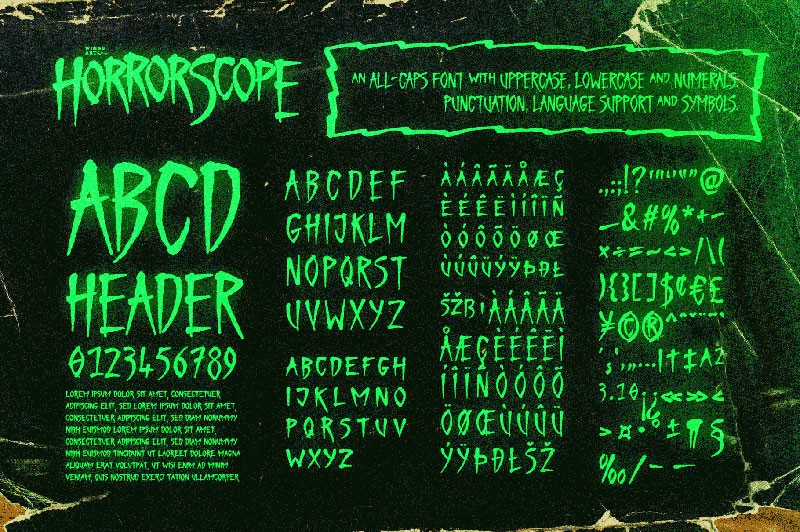 WINGS
ART
HORRORSCOPE
AN ALL-CAPS FONT WITH UPPERCASE, LOWERCASE AND NUMERALS.
PUNCTUATION, LANGUAGE SUPPORT AND SYMBOLS.
ABCD
HEADER
0123456789
LOREM IPSUM DOLOR SIT AMET, CONSECTETUER
ADIPISCING ELIT, SED LOREM IPSUM DOLOR SIT AMET,
CONSECTETUER ADIPISCING ELIT, SED DIAM NONUMMY
NIBH EUISMOD LOREM IPSUM DOLOR SIT AMET,
CONSECTETUER ADIPISCING ELIT, SED DIAM NONUMMY
NIBH EUISMOD TINCIDUNT UT LAOREET DOLORE MAGNA
ALIQUAM ERAT VOLUTPAT, UT WISI ENIM AD MINIM
VENIAM, QUIS NOSTRUD EXERCI TATION ULLAMCORPER
ABCDEF
GHIJKLM
NOPQRST
UVWXYZ
ABCDEFGH
IJKLMNO
PQRSTUV
WXYZ
ÀÁÂÃÄÅÆÇ
ÈÉÊËÌÍÎÏÑ
ÒÓÔÕÖØŒ
ÙÚÛÜÝŸÞÐŁ
ŠŽßıÀÁÂÃÄ
ÅÆÇÈÉÊËÌ
ÍÎÏÑÒÓÔÕ
ÖØŒÙÚÛÜ
ÝŸÞÐŁŠŽ
.,:;!?'"''""@
_&#%*+-
×÷=~<>/\(
){}[]$¢€£
¥©®